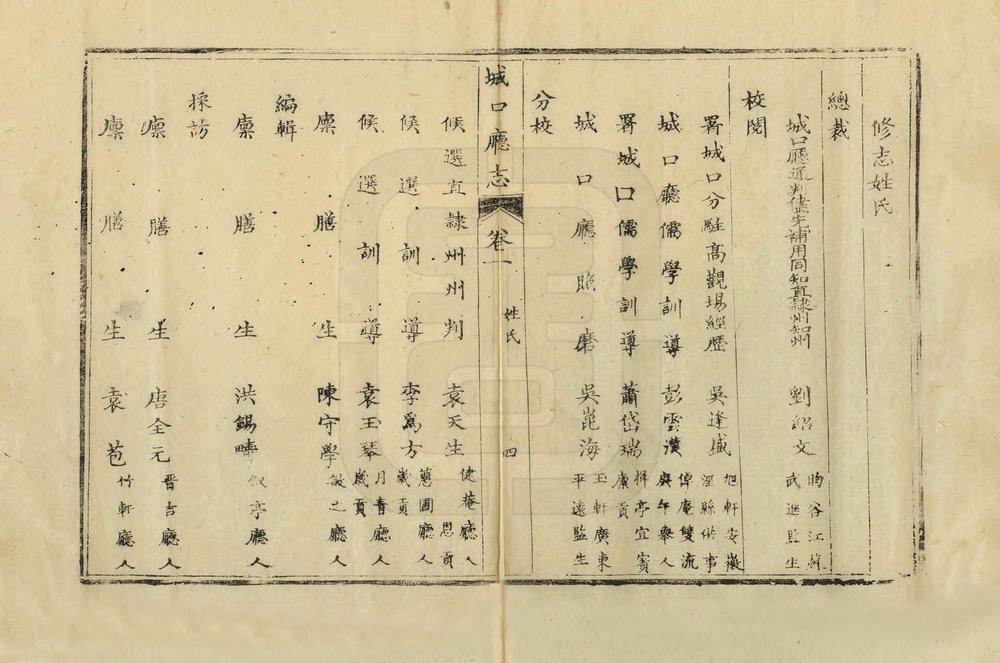 修志姓氏
總裁
城口廳通判儘先補用同知直隸州知州 劉紹文 昀谷江蘇武進監生
校閱
署城口分駐高觀場經歷 吳逢盛 旭軒安徽涇縣供事
城口廳儒學訓導 彭雲漢 倬庵雙流庚午舉人
署城口儒學訓導 蕭岱瑞 輯亭宜賓廩貢
城口廳照磨 吳崑海 玉軒廣東平遠監生
分校
城口廳志 卷一 姓氏 四
候選直隸州州判 袁天生 健菴廳人恩貢
候選訓導 李爲方 蕙圃廳人歲貢
候選訓導 袁玉琴 月青廳人歲貢
廪膳生 陳守學 敏之廳人
編輯
廪膳生 洪錫疇 敘亭廳人
採訪
廪膳生 唐全元 晋吉廳人
廪膳生 袁苞 竹軒廳人